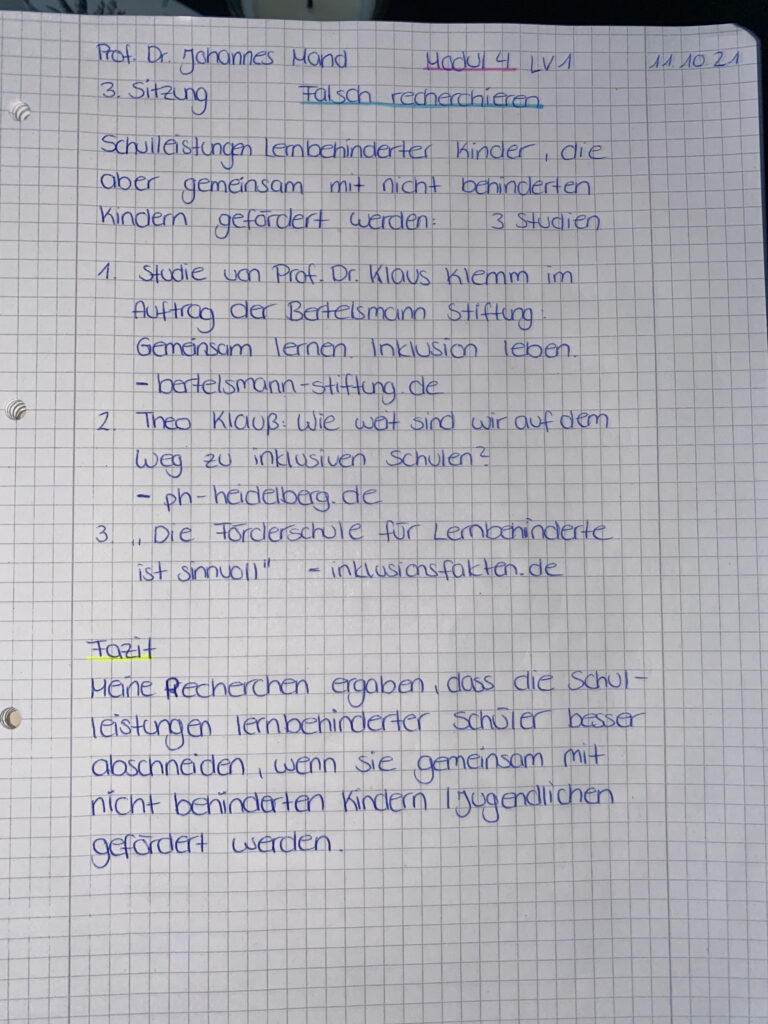 Prof. Dr. Johannes Mand Modul 4 LV1 11.10.21
3. Sitzung Falsch recherchieren
Schulleistungen lernbehinderter Kinder, die
aber gemeinsam mit nicht behinderten
Kindern gefördert werden: 3 Studien
1. Studie von Prof. Dr. Klaus Klemm im
Auftrag der Bertelsmann Stiftung:
Gemeinsam lernen. Inklusion leben.
- bertelsmann-stiftung.de
2. Theo Klauß: Wie weit sind wir auf dem
Weg zu inklusiven Schulen?
- ph-heidelberg.de
3. „Die Förderschule für Lernbehinderte
ist sinnvoll" - inklusionsfakten.de
Fazit
Meine Recherchen ergaben, dass die Schul-
leistungen lernbehinderter Schüler besser
abschneiden, wenn sie gemeinsam mit
nicht behinderten Kindern / Jugendlichen
gefördert werden.